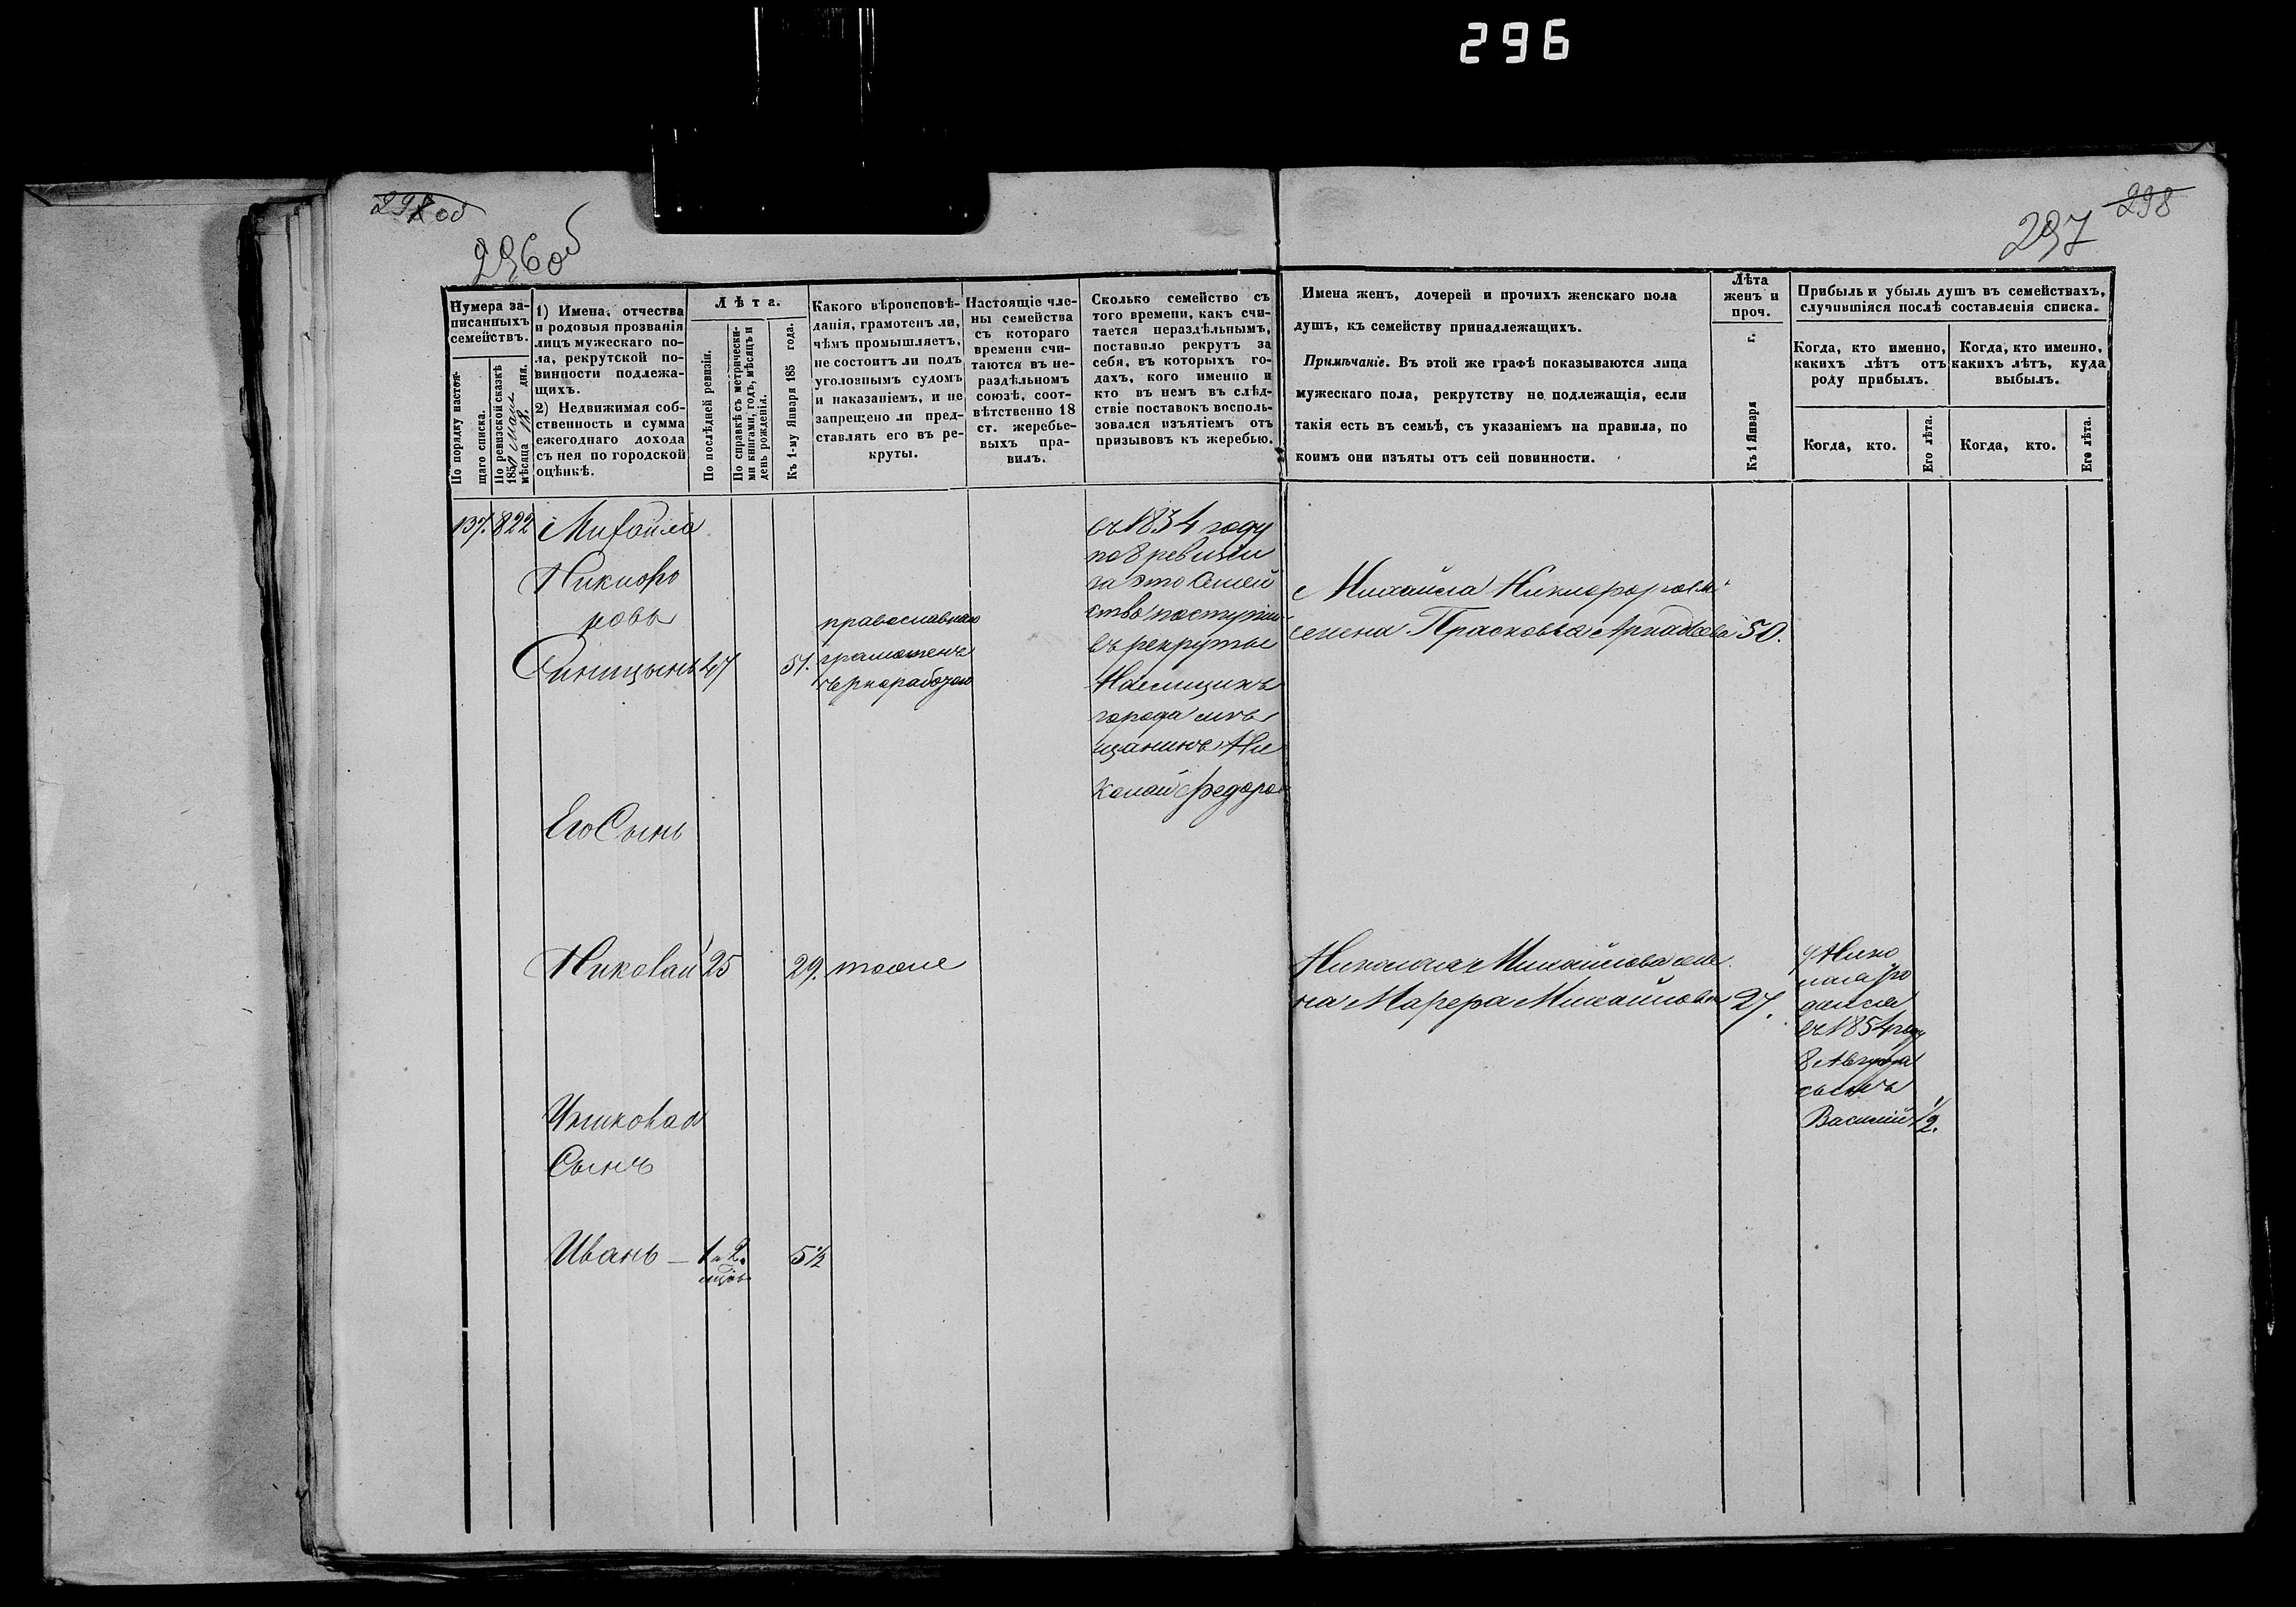 296
297 об
296 об
298
297
Нумера за-
писанныхъ
семействъ.
По порядку настоя-
щаго списка.
По ревизской сказкѣ
185 мѣсяца дня.
1) Имена, отчества
и родовыя прозванія
лицъ мужескаго по-
ла, рекрутской по-
винности подлежа-
щихъ.
2) Недвижимая соб-
ственность и сумма
ежегоднаго дохода
съ нея по городской
оцѣнкѣ.
Лѣта.
По послѣдней ревизіи.
По справкѣ съ метрически-
ми книгами, годъ, мѣсяцъ и
день рожденія.
Къ 1-му Января 185 года.
Какого вѣроисповѣ-
данія, грамотенъ ли,
чѣмъ промышляетъ,
не состоитъ ли подъ
уголовнымъ судомъ
и наказаніемъ, и не
запрещено ли пред-
ставлять его въ ре-
круты.
Настоящіе чле-
ны семейства
съ котораго
времени счи-
таются въ не-
раздѣльномъ
союзѣ, соот-
вѣтственно 18
ст. жеребье-
выхъ пра-
вилъ.
Сколько семейство съ
того времени, какъ счи-
тается нераздѣльнымъ,
поставило рекрутъ за
себя, въ которыхъ го-
дахъ, кого именно и
кто въ немъ въ слѣд-
ствіе поставокъ восполь-
зовался изъятіемъ отъ
призывовъ къ жеребью.
Имена женъ, дочерей и прочихъ женскаго пола
душъ, къ семейству принадлежащихъ.
Примѣчаніе. Въ этой же графѣ показываются лица
мужескаго пола, рекрутству не подлежащія, если
такія есть въ семьѣ, съ указаніемъ на правила, по
коимъ они изъяты отъ сей повинности.
Лѣта
женъ и
проч.
Къ 1 Января г.
Прибыль и убыль душъ въ семействахъ,
случившіяся послѣ составленія списка.
Когда, кто именно,
какихъ лѣтъ отъ
роду прибылъ.
Когда, кто. Его лѣта.
Когда, кто именно,
какихъ лѣтъ, куда
выбылъ.
Когда, кто. Его лѣта.
137. 822 Михайло
Никифо
ровъ
Синицынъ 47 51.
православнаго
грамотенъ
чернорабочей
въ 1834 году
по 8 ревизіи
за это Семей
ство поступилъ
въ рекруты
Наемщикъ
города мѣ
щанинъ Ни
колай Федоров
Михаила Никифорова
жена Прасковья 50.
Его Сынъ
Николай 25 29. тоже
Николая Михайлова же
на Михайлова 27.
У Нико
лая ро
дился
въ 1854 году
8 Августа
сынъ
Василій 1/2.
У Николая
Сынъ
Иванъ 1 и 2. 5 1/2